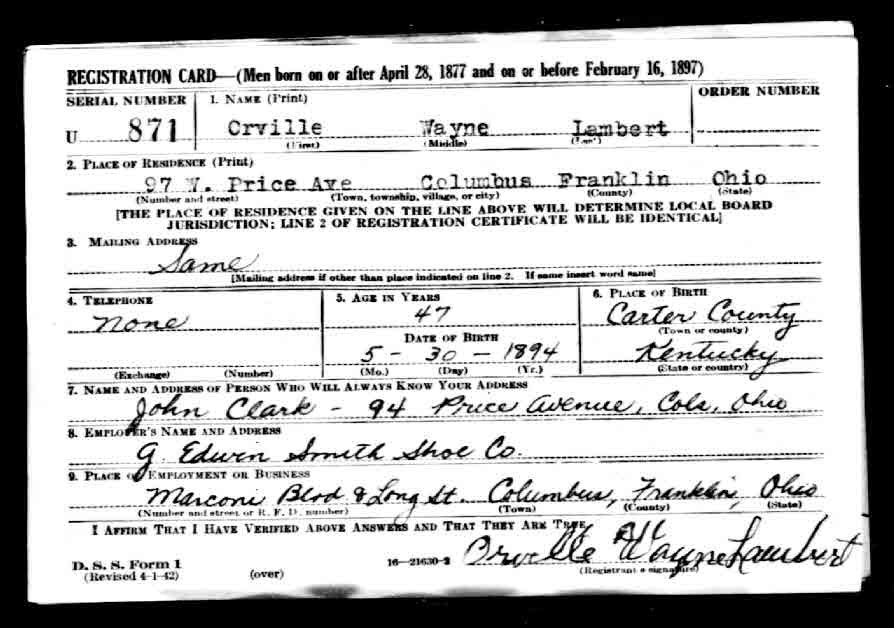 REGISTRATION CARD—(Men born on or after April 28, 1877 and on or before February 16, 1897)
SERIAL NUMBER 1. NAME (Print) ORDER NUMBER
U 871 Orville Wayne Lambert
(First) (Middle) (Last)
2. PLACE OF RESIDENCE (Print)
97 W. Price Ave Columbus Franklin Ohio
(Number and street) (Town, township, village, or city) (County) (State)
[THE PLACE OF RESIDENCE GIVEN ON THE LINE ABOVE WILL DETERMINE LOCAL BOARD
JURISDICTION; LINE 2 OF REGISTRATION CERTIFICATE WILL BE IDENTICAL]
3. MAILING ADDRESS
Same
[Mailing address if other than place indicated on line 2. If same insert word same]
4. TELEPHONE 5. AGE IN YEARS 6. PLACE OF BIRTH
None 47 Carter County
(Town or county)
DATE OF BIRTH
5 - 30 - 1894 Kentucky
(Exchange) (Number) (Mo.) (Day) (Yr.) (State or country)
7. NAME AND ADDRESS OF PERSON WHO WILL ALWAYS KNOW YOUR ADDRESS
John Clark - 94 Price Avenue, Cols, Ohio
8. EMPLOYER'S NAME AND ADDRESS
G. Edwin Smith Shoe Co.
9. PLACE OF EMPLOYMENT OR BUSINESS
Marconi Blvd & Long St. Columbus, Franklin, Ohio
(Number and street or R. F. D. number) (Town) (County) (State)
I AFFIRM THAT I HAVE VERIFIED ABOVE ANSWERS AND THAT THEY ARE TRUE.
D. S. S. Form 1 16—21630-2 Orville Wayne Lambert
(Revised 4-1-42) (over) (Registrant's signature)